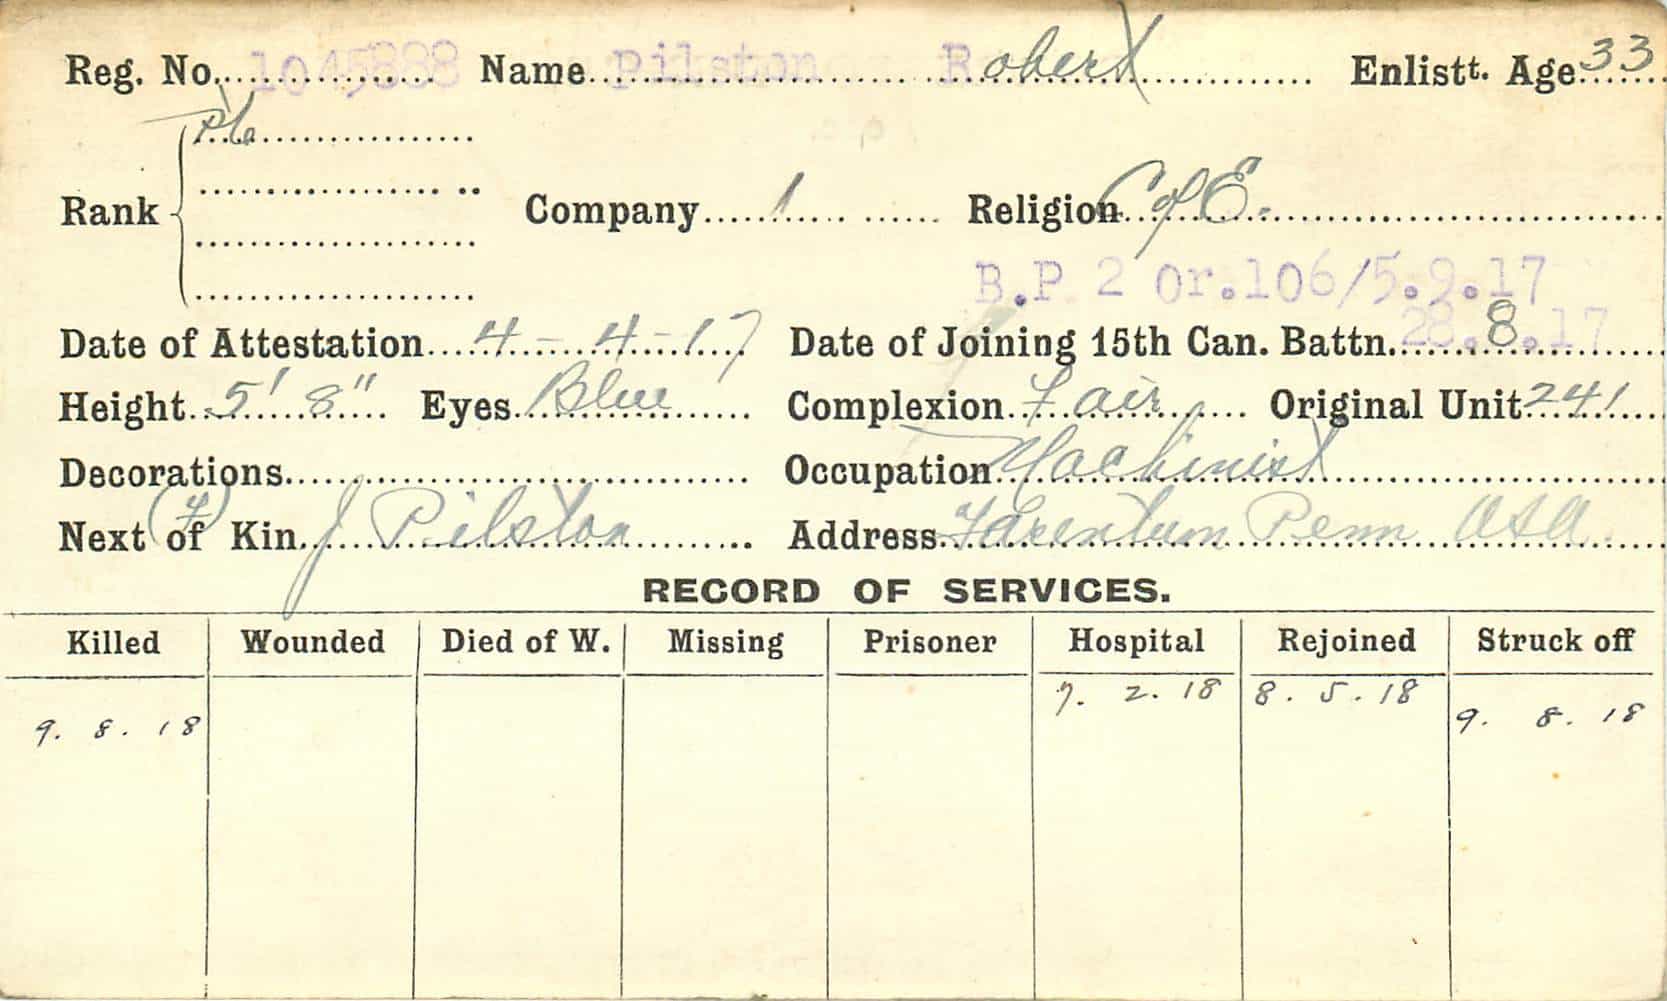 Reg. No. 1045888 Name Pilston Robert Enlistt. Age 33
Pte
Rank Company 1 Religion C of E.
B.P 2 Or.106/5.9.17
28.8.17
Date of Attestation 4-4-17 Date of Joining 15th Can. Battn.
Height 5' 8" Eyes Blue Complexion Fair Original Unit 241
Decorations Occupation Machinist
(F)
Next of Kin J Pilston Address Tarentum Penn USA
RECORD OF SERVICES.
Killed Wounded Died of W. Missing Prisoner Hospital Rejoined Struck off
7. 2. 18 8. 5. 18
9. 8. 18 9. 8. 18